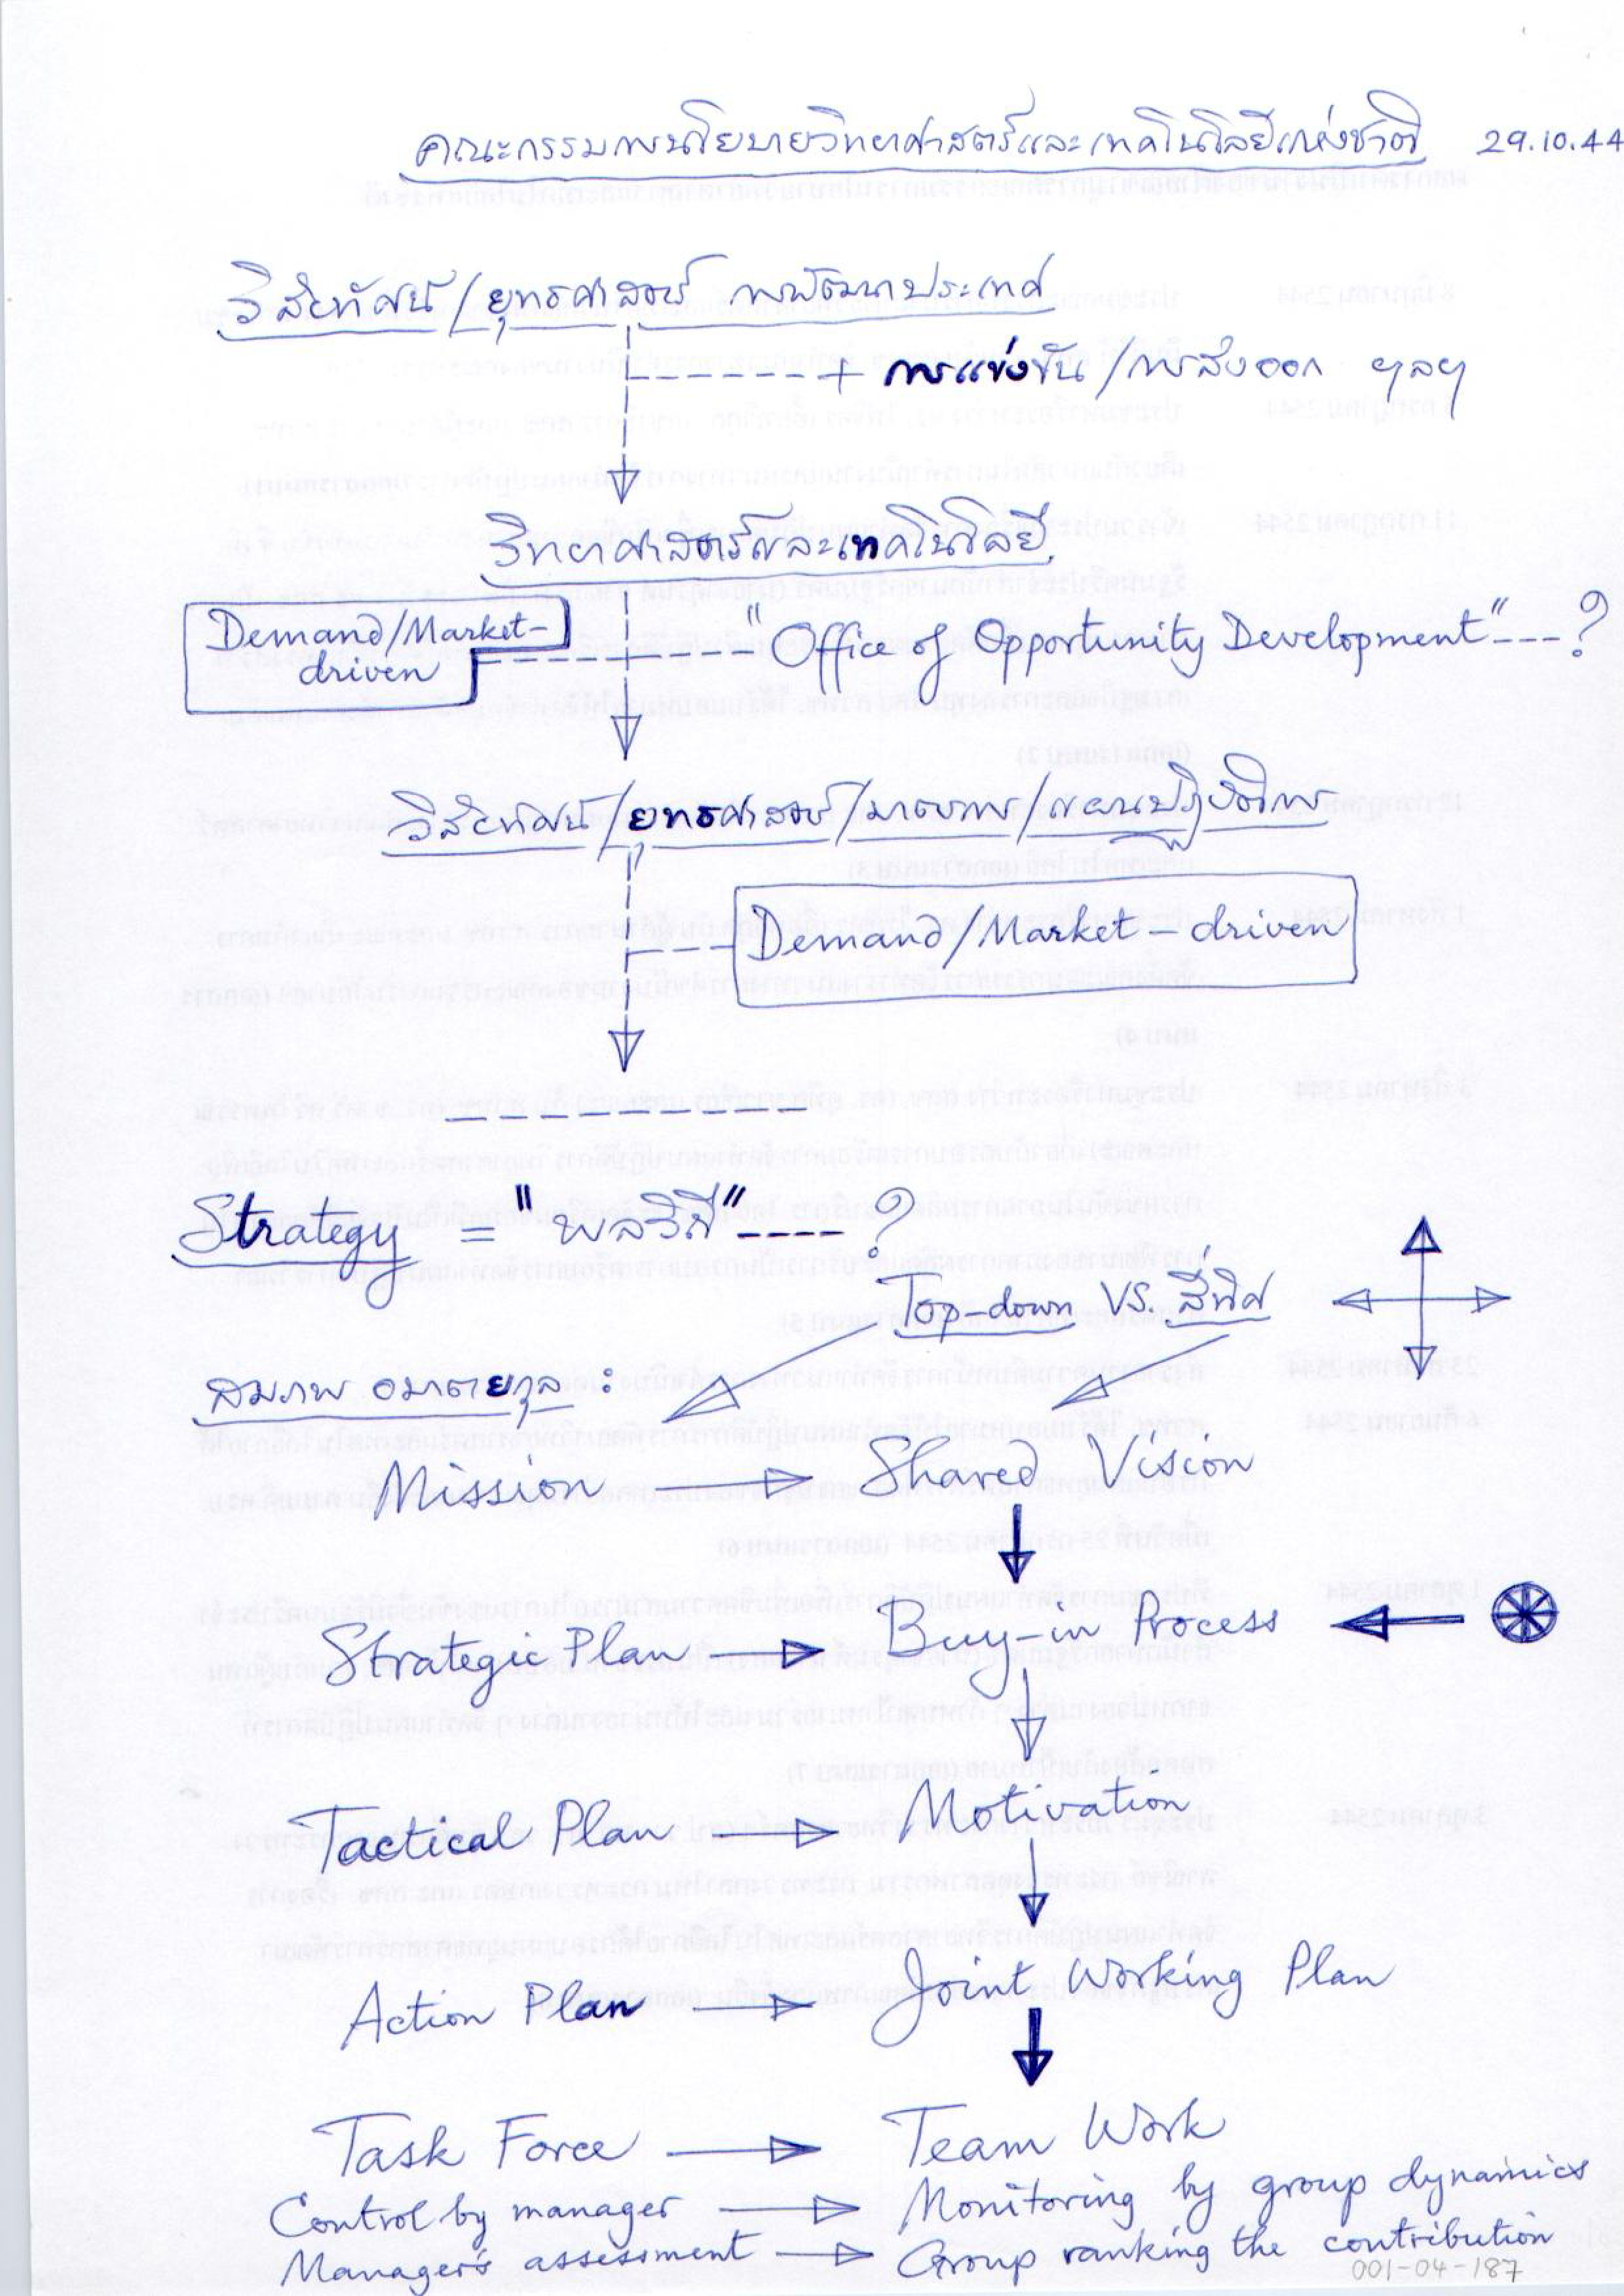 คณะกรรมการนโยบายวิทยาศาสตร์และเทคโนโลยีแห่งชาติ 29.10.44
วิสัยทัศน์/ยุทธศาสตร์ การพัฒนาประเทศ
การแข่งขัน/การส่งออก ฯลฯ
วิทยาศาสตร์และเทคโนโลยี
Demand/Market-
driven
"Office of Opportunity Development"---?
วิสัยทัศน์/ยุทธศาสตร์/มาตรการ/แผนปฏิบัติการ
Demand/Market-driven
Strategy = "พลวิถี"----?
Top-down VS. สี่ทิศ
สมภพ อมาตยกุล :
Mission Shared Vision
Strategic Plan Buy-in Process
Tactical Plan Motivation
Action Plan Joint Working Plan
Task Force Team Work
Control by manager Monitoring by group dynamics
Manager's assessment Group ranking the contribution
001-04-187